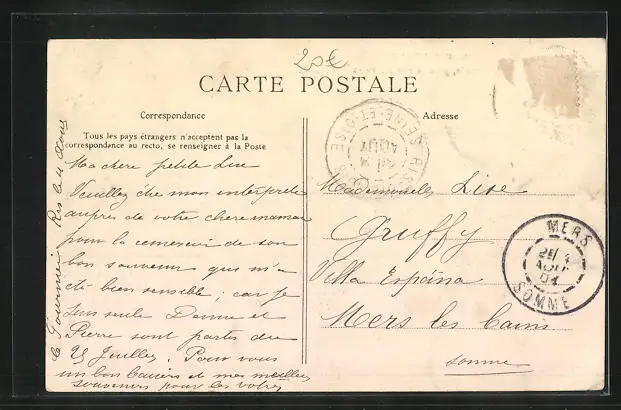 20€
CARTE POSTALE
Correspondance
Adresse
Tous les pays étrangers n'acceptent pas la
correspondance au recto, se renseigner à la Poste
Ma chère petite Lise
Veuillez être mon interprète
auprès de votre chère maman
pour la remercier de son
bon souvenir qui m'a
été bien sensible ; car je
suis seule
Pierre sont partis du
25 Juillet. Pour vous
un bon baiser et mes meilleurs
souvenirs pour les votres
Ris le 4 Aout
Mademoiselle Lise
Gruffy
Villa Espéria
Mers les bains
somme
SEINE-ET-OISE
RIS
AOUT
MERS
AOUT
04
SOMME